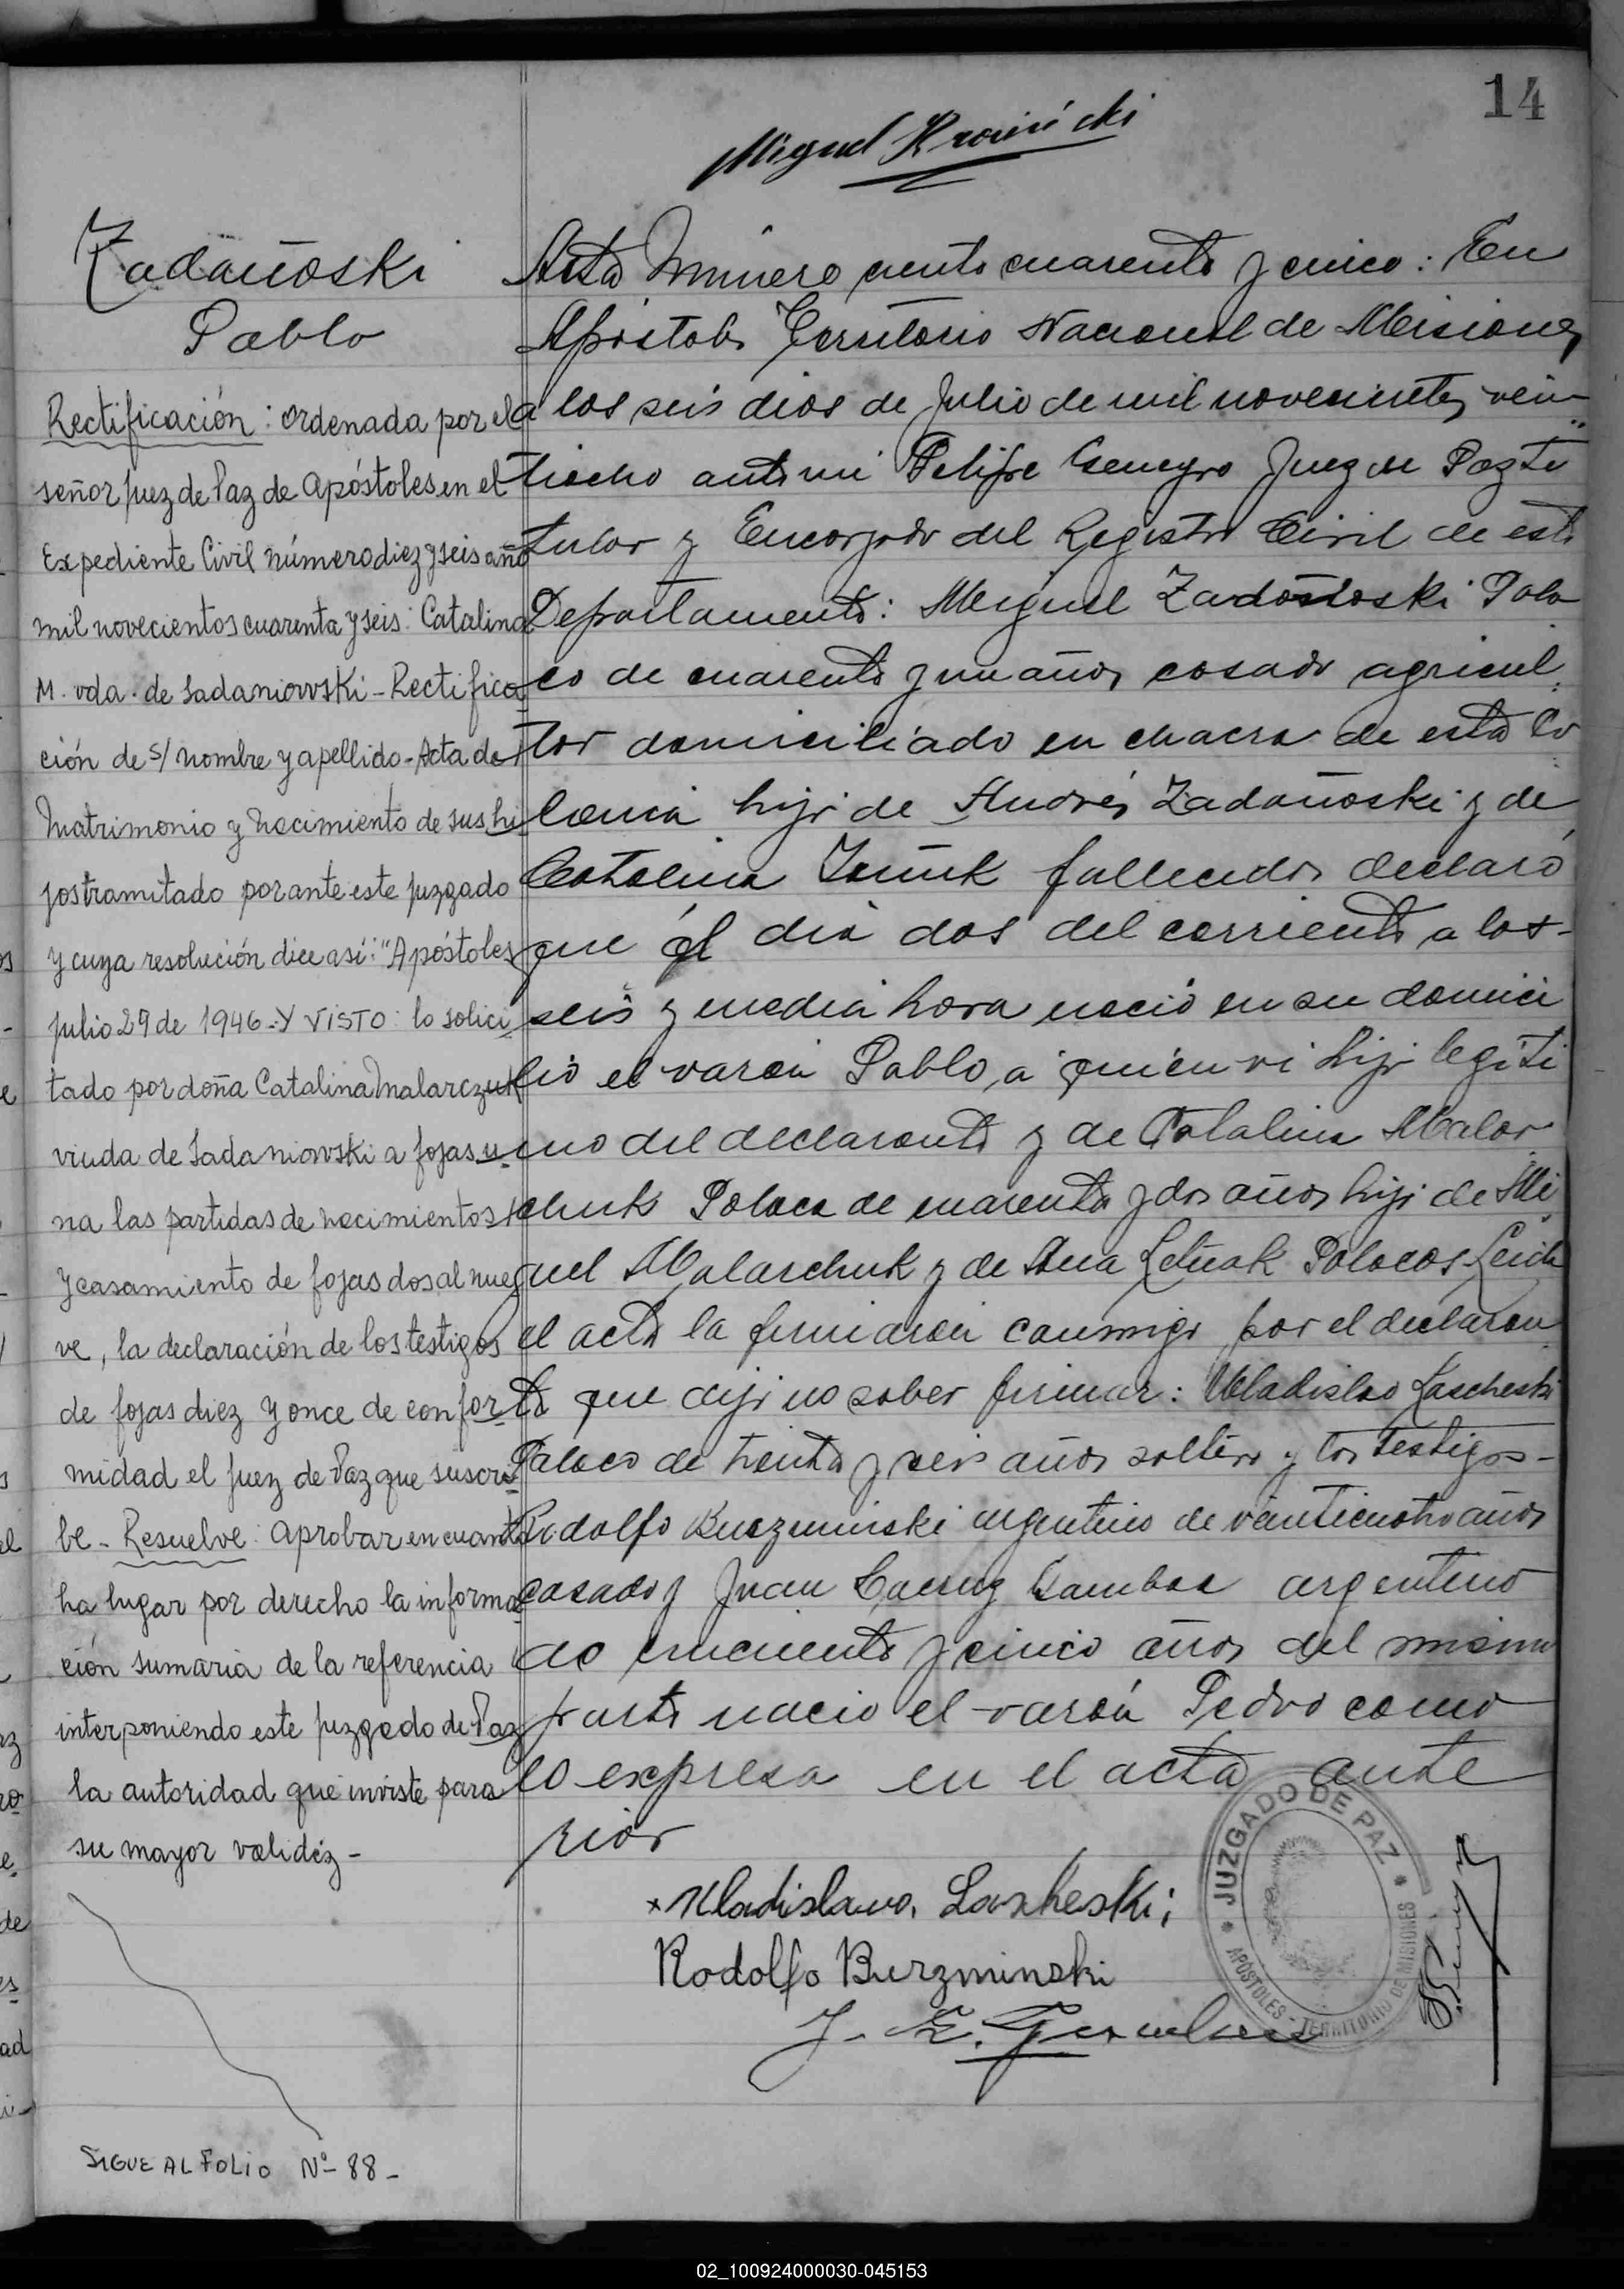 14
Miguel
Zadañoski
Pablo
Rectificación: Ordenada por el
señor Juez de Paz de Apóstoles en el
Expediente Civil número diez y seis año
mil novecientos cuarenta y seis: Catalina
M. vda. de Sadaniowski - Rectifica
ción de s/ nombre y apellido - Acta de
Matrimonio y Nacimiento de sus hi
jos tramitado por ante este juzgado
y cuya resolución dice así: "Apóstoles
julio 29 de 1946.- Y VISTO: lo solici
tado por doña Catalina Malarczuk
viuda de Sadaniowski a fojas u-
na las partidas de nacimientos
y casamiento de fojas dos al nue
ve, la declaración de los testigos
de fojas diez y once de confor-
midad el Juez de Paz que suscri
be - Resuelve: Aprobar en cuanto
ha lugar por derecho la informa
ción sumaria de la referencia
interponiendo este juzgado de Paz
la autoridad que inviste para
su mayor validéz -
SIGUE AL FOLIO Nº 88 -
Acta Número ciento cuarenta y cinco: En
Apóstoles Territorio Nacional de Misiones
a los seis dias de Julio de mil novecientos vein
tiocho ante mi Felipe Juez de Paz ti
tular y Encargado del Registro Civil de este
Departamento: Miguel Zadañoski Pola
co de cuarenta y un años casado agricul
tor domiciliado en chacra de esta Co
lonia hijo de Andrés Zadañoski y de
Catalina fallecidos declaró
que el dia dos del corriente a las -
seis y media hora nació en su domici
lio el varón Pablo, a quien vi hijo legiti
mo del declarante y de Catalina Malar
chuk Polaca de cuarenta y dos años hija de Mi
guel Malarchuk y de Ana Polacos Leida
el acta la firmaron conmigo por el declaran
te que dijo no saber firmar: Uladislao Lascheski
Polaco de treinta y seis años soltero y los testigos -
Rodolfo Burzminski argentino de veinticuatro años
casado y Juan Gamboa argentino
de cincuenta y cinco años del mismo
parto nacio el varón Pedro como
lo expresa en el acta ante
rior
x Uladislavo. Lasheski;
Rodolfo Burzminski
JUZGADO DE PAZ
APOSTOLES - TERRITORIO DE MISIONES
02_100924000030-045153